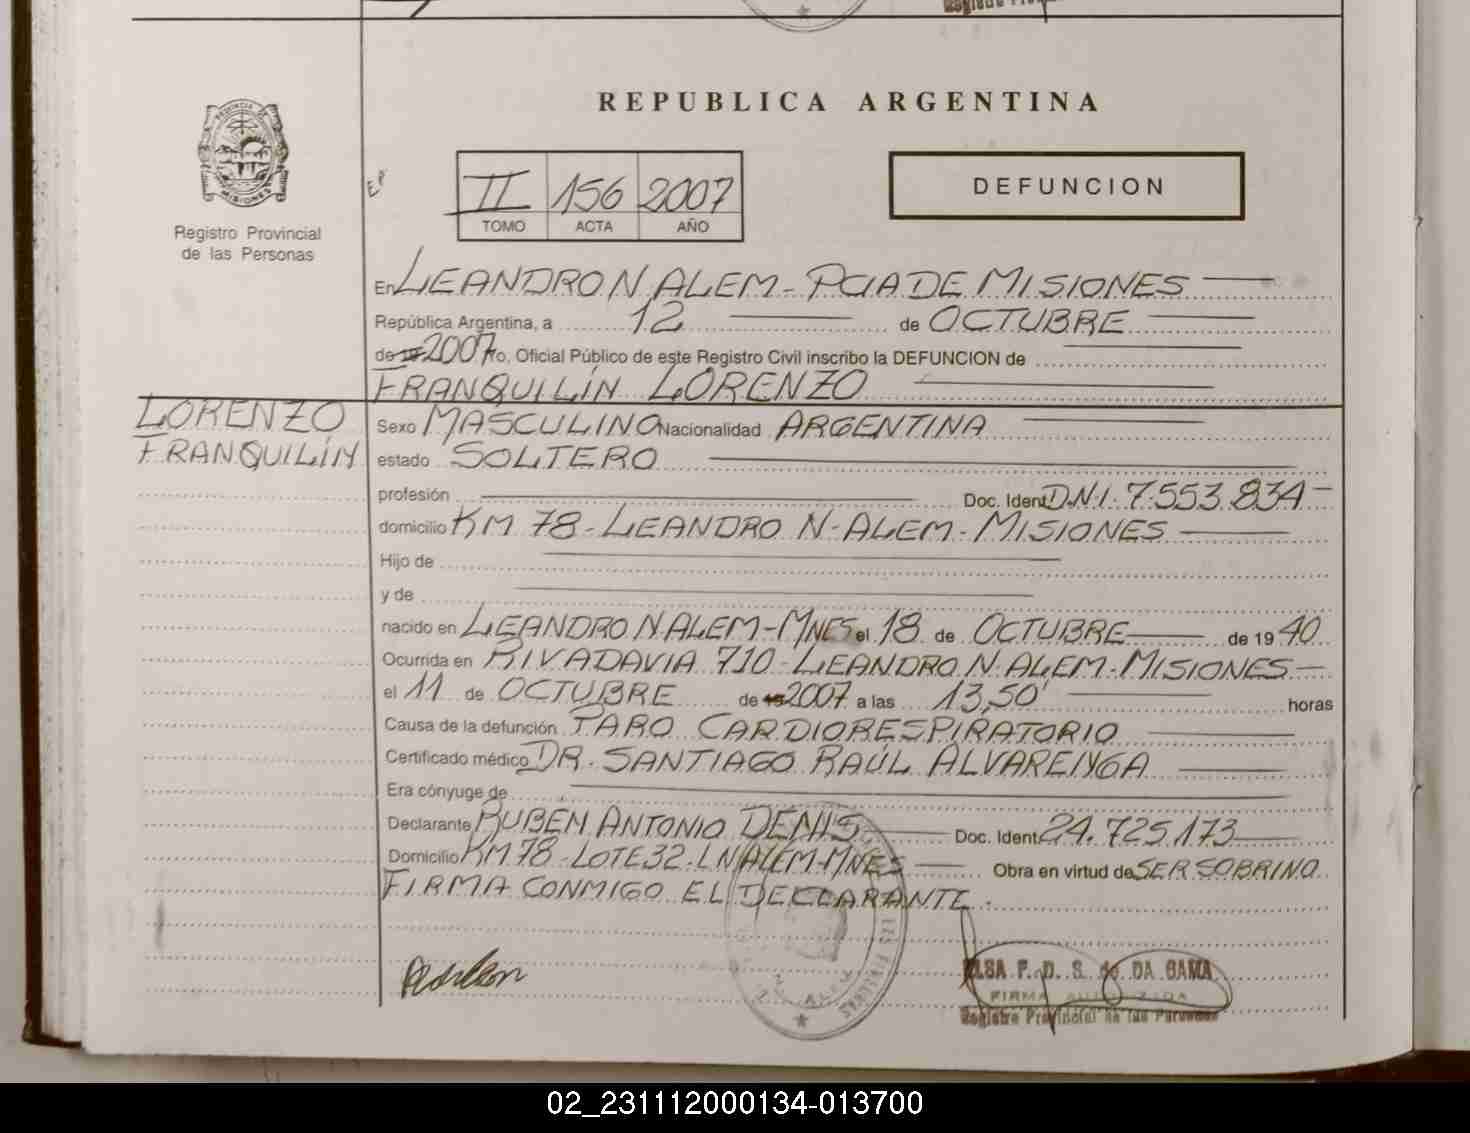 REPUBLICA ARGENTINA
PROVINCIA DE MISIONES
Registro Provincial
de las Personas
II 156 2007
TOMO ACTA AÑO
DEFUNCION
En LEANDRO N ALEM - PCIA DE MISIONES
República Argentina, a 12 de OCTUBRE
de 19 2007 Yo, Oficial Público de este Registro Civil inscribo la DEFUNCION de
FRANQUILÍN LORENZO
LORENZO
FRANQUILÍN
Sexo MASCULINO Nacionalidad ARGENTINA
estado SOLTERO
profesión Doc. Ident. D.N.I. 7.553.834
domicilio KM 78 - LEANDRO N. ALEM - MISIONES
Hijo de
y de
nacido en LEANDRO N ALEM - MNES el 18 de OCTUBRE de 19 40
Ocurrida en RIVADAVIA 710 - LEANDRO N. ALEM - MISIONES
el 11 de OCTUBRE de 19 2007 a las 13,50' horas
Causa de la defunción PARO CARDIORESPIRATORIO
Certificado médico DR. SANTIAGO RAÚL ALVARENGA
Era cónyuge de
Declarante RUBÉN ANTONIO DENIS Doc. Ident. 24.725.173
Domicilio KM 78 - LOTE 32 - L N ALEM - MNES Obra en virtud de SER SOBRINO
FIRMA CONMIGO EL DECLARANTE.
ELSA F. D. S. de DA GAMA
FIRMA AUTORIZADA
Registro Provincial de las Personas
02_231112000134-013700